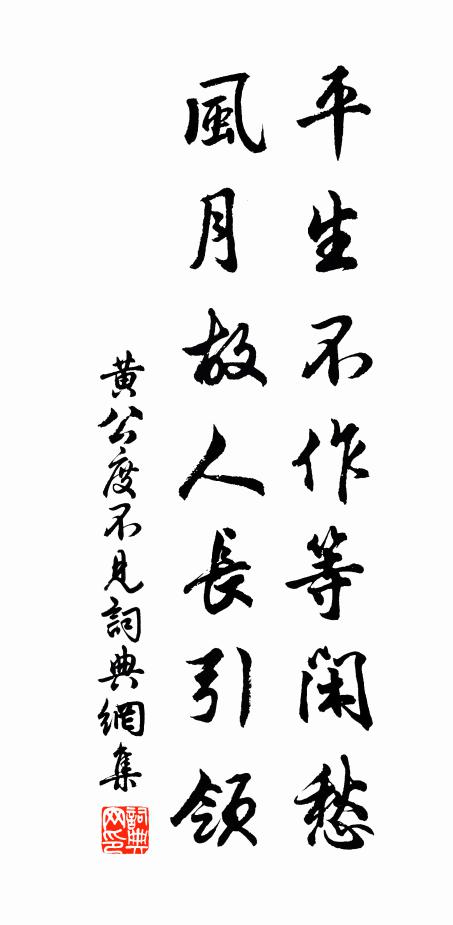 平生不作等閑愁
風月故人長引領
黄公度不見詞典網集
詞典網印